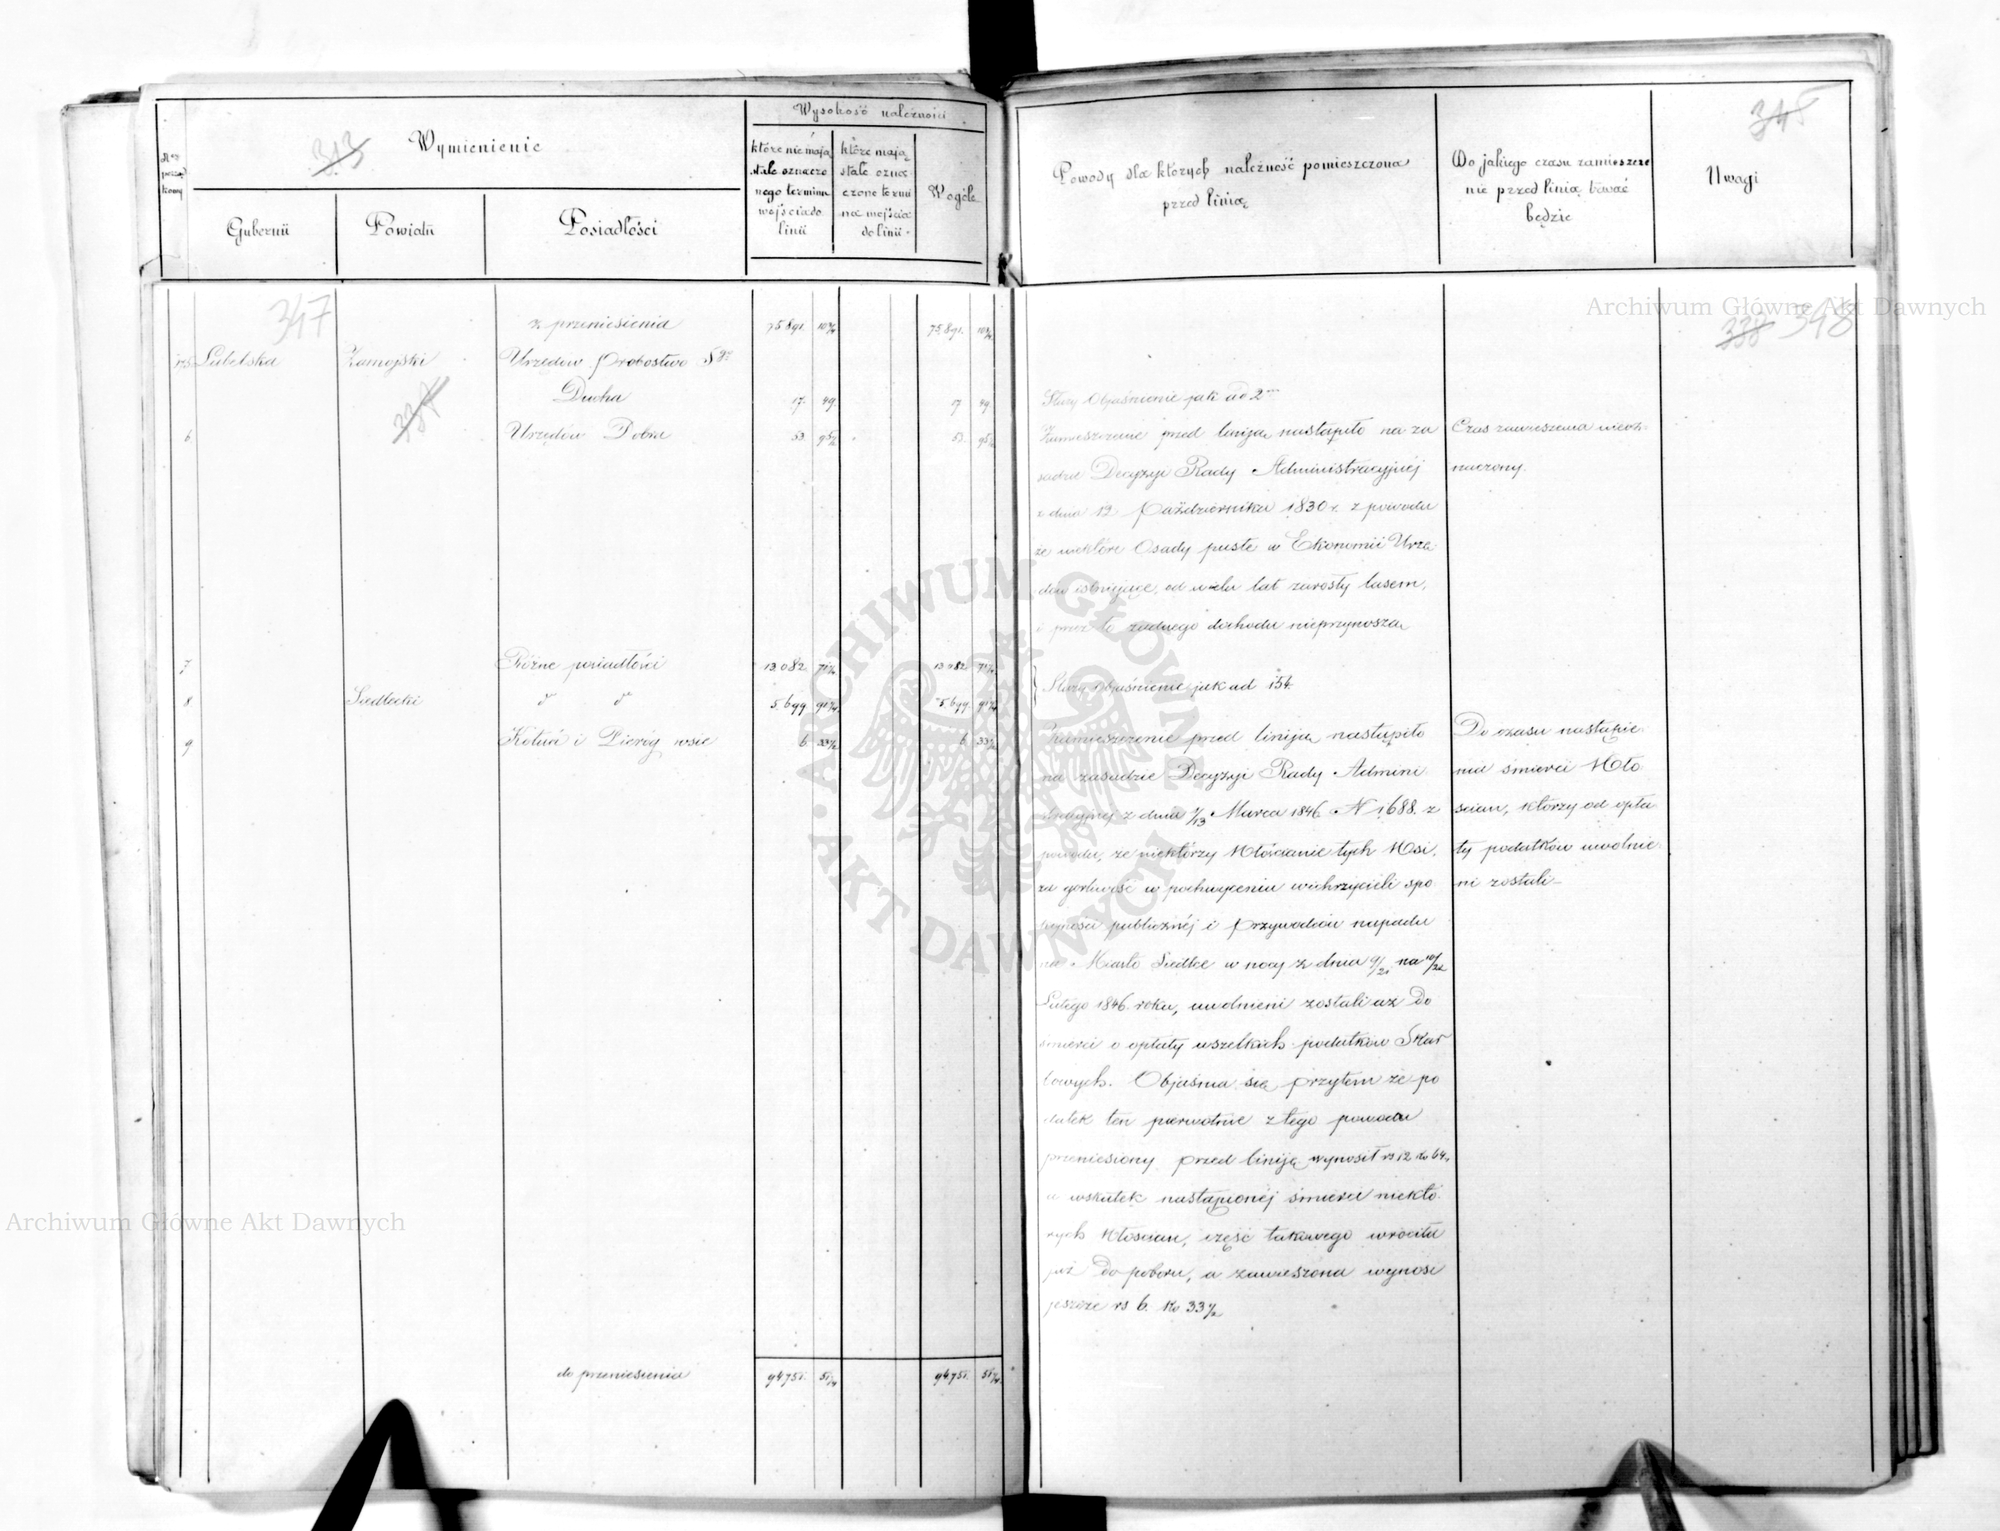 Wysokość należności
313
Wymienienie
które nie mają stale oznaczonego terminu wejścia do linii
które mają stale oznaczone terminu na wejścia do linii
W ogóle
Nr porządkowy
Gubernii
Powiatu
Posiadłości
347
z przeniesienia 75891. 75891.
Lubelska Zamojski Urzędów Probostwo Sgo
Ducha 17. 49 17 49
6 Urzędów Dobra 53. 95½ 53. 95½
334
7 Różne posiadłości 13.082. 13.082.
8 Siedlecki do do 5.699. 5.699.
9 Kotuń i Pieróg wsie 6. 33½ 6. 33½
do przeniesienia 94751. 94751.
345
Powody dla których należność pomieszczona
przed linią
Do jakiego czasu zamieszcze
nie przed linią trwać
będzie
Uwagi
338 348
Służy Objaśnienie jak ad 2
Zamieszczenie przed liniją nastąpiło na za
sadzie Decyzyi Rady Administracyjnéj
z dnia 12 Października 1830 r. z powodu
że niektóre Osady puste w Ekonomii Urzę
dów istniejące, od wielu lat zarosły lasem,
i przez to żadnego dochodu nieprzynoszą
Służy objaśnienie jak ad 154.
Zamieszczenie przed liniją nastąpiło
na zasadzie Decyzyi Rady Admini
stracyjnej z dnia 1/13 Marca 1846 N 1688. z
powodu, że niektórzy Włościanie tych Wsi,
za gorliwość w pochwyceniu wichrzycieli spo
kojności publicznéj i przywódców napadu
na Miasto Siedlce w nocy z dnia 9/21 na 10/22
Lutego 1846. roku, uwolnieni zostali aż do
śmierci o opłaty wszelkich podatków Skar
bowych. Objaśnia się przytem że po
datek ten pierwotnie z tego powodu
przeniesiony przed liniją wynosił rs 12 ko 64,
a wskutek nastąpionéj śmierci niektó
rych Włościan, część takowego wróciła
już do poboru, a zawieszona wynosi
jeszcze rs 6. ko 33½
Czas zawieszenia nieoz-
naczony.
Do czasu nastąpie-
nia śmierci Wło
ścian, którzy od opła
ty podatków uwolnie-
ni zostali
Archiwum Główne Akt Dawnych
Archiwum Główne Akt Dawnych
ARCHIWUM GŁÓWNE AKT DAWNYCH